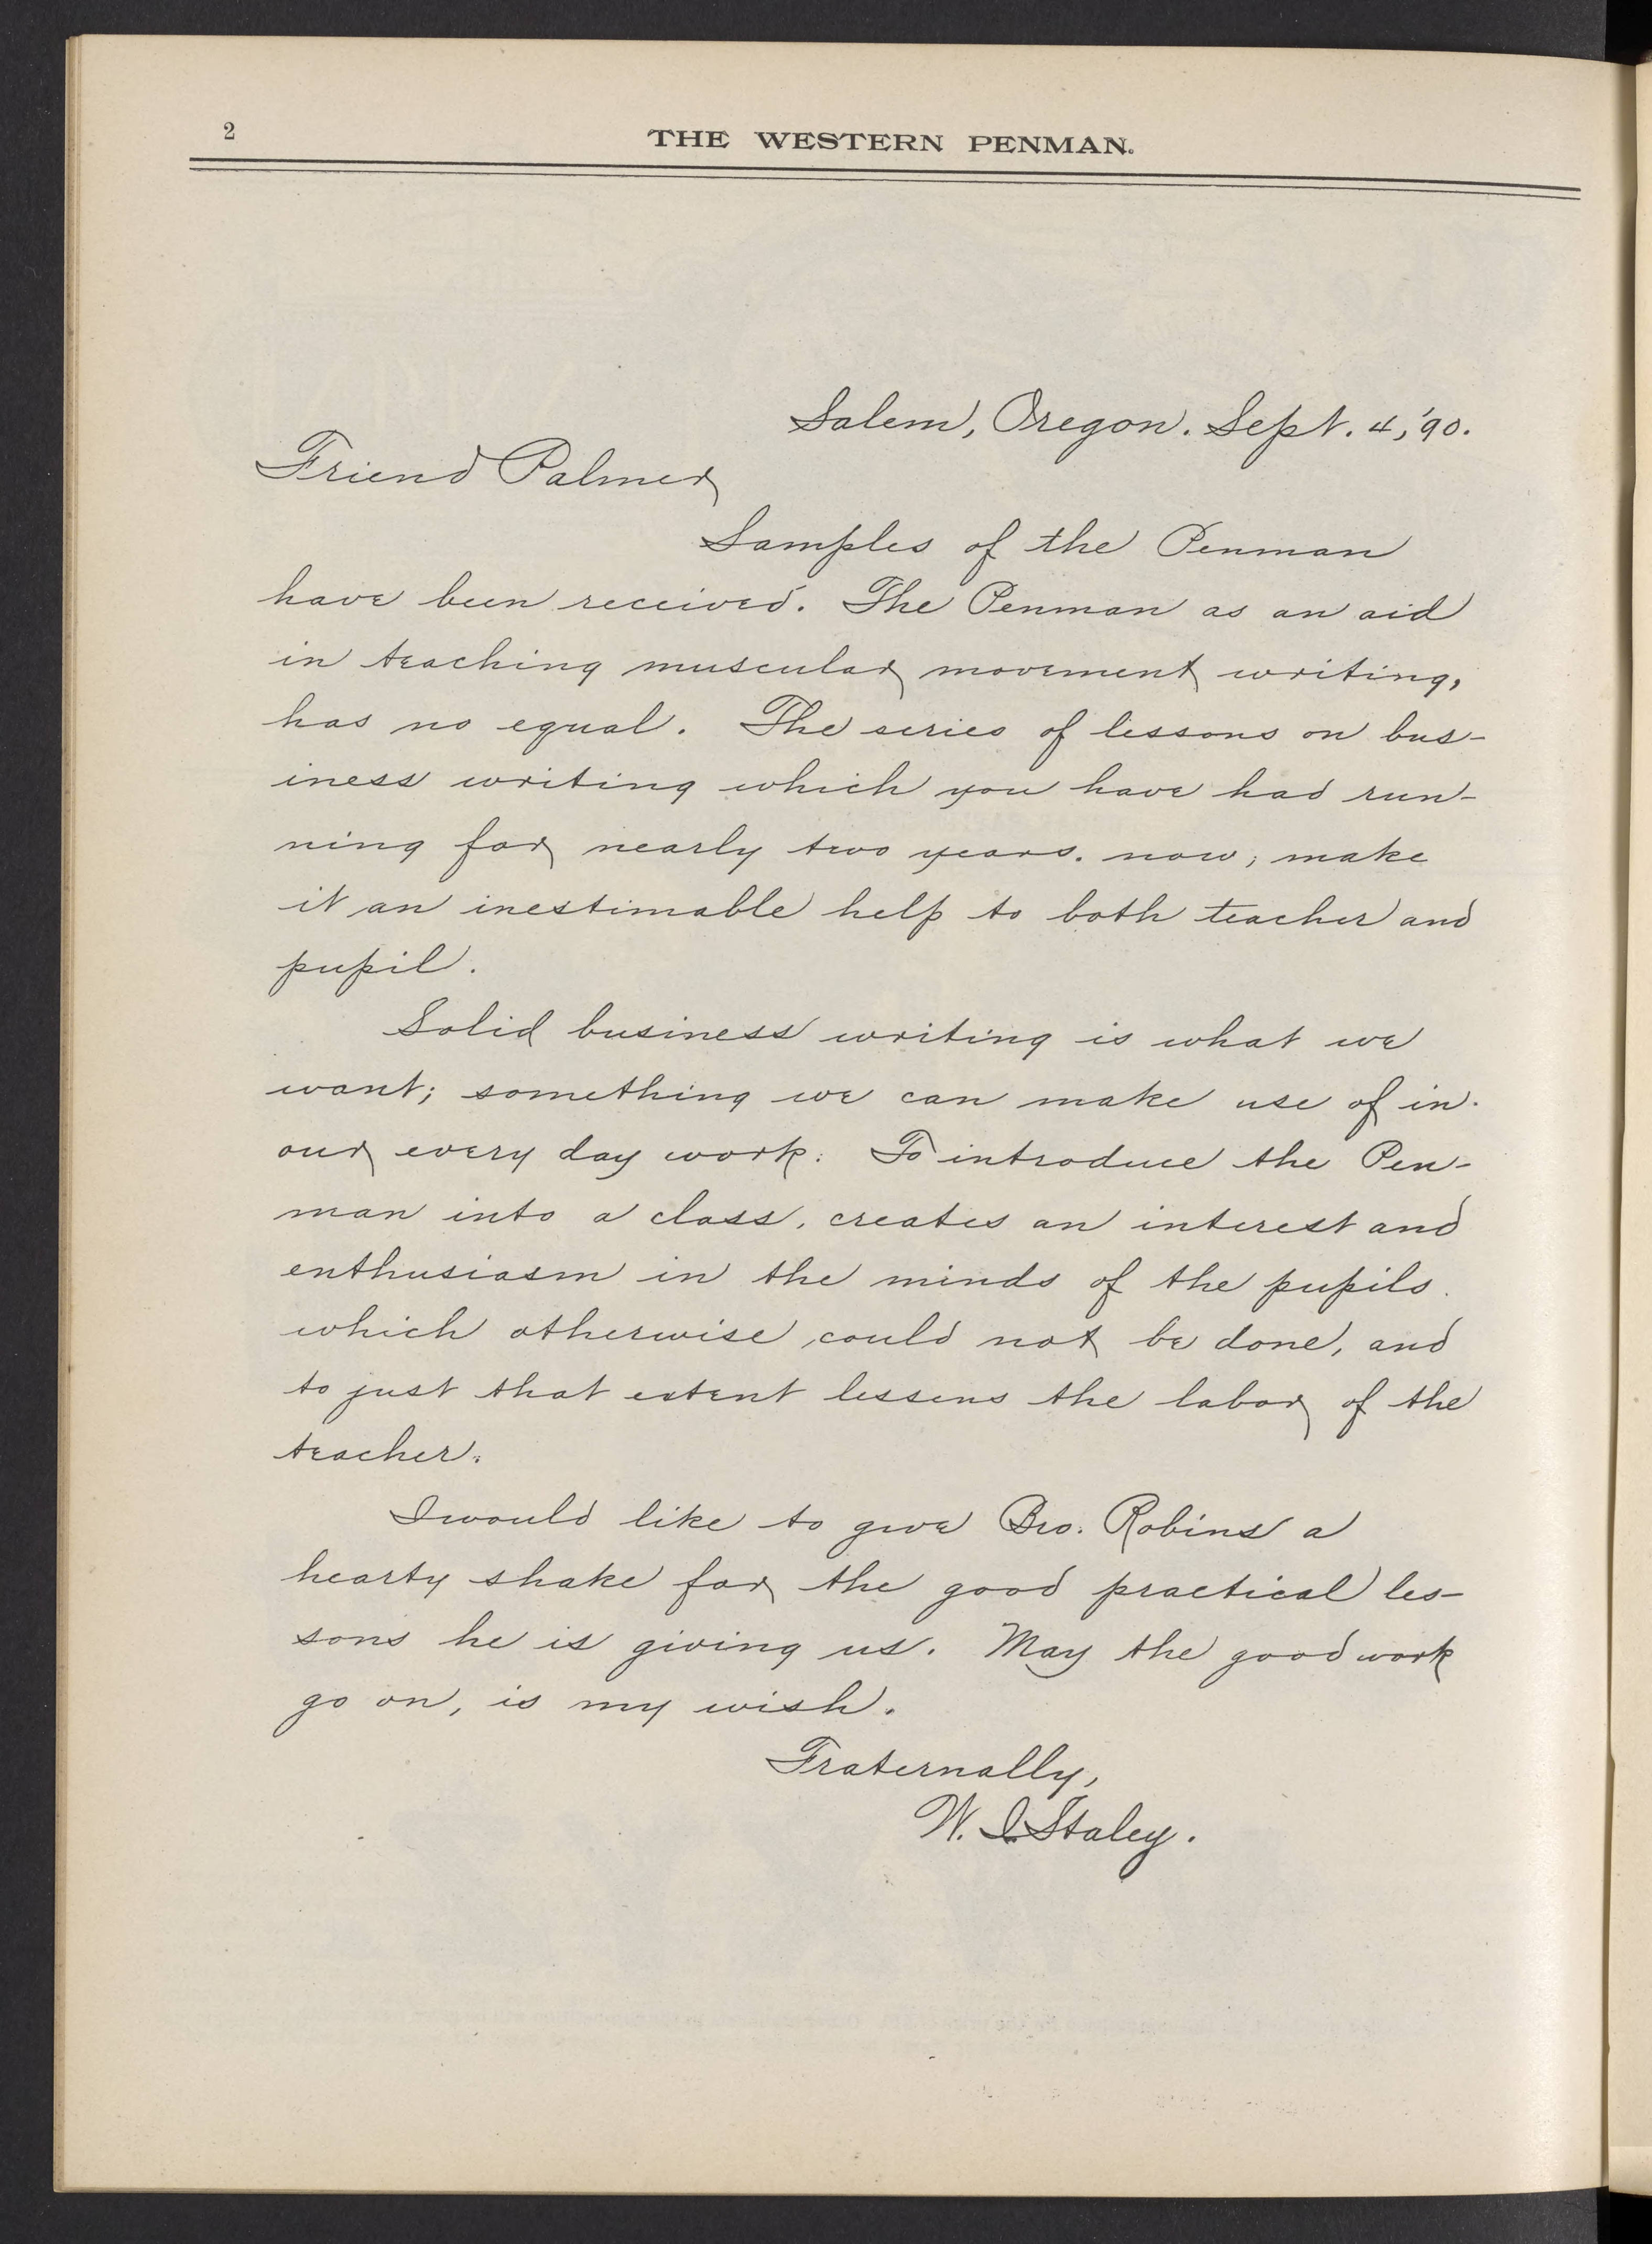 2
THE WESTERN PENMAN.
Salem, Oregon. Sept. 4, '90.
Friend Palmer
Samples of the Penman
have been received. The Penman as an aid
in teaching muscular movement writing,
has no equal. The series of lessons on bus-
iness writing which you have had run-
ning for nearly two years. now, make
it an inestimable help to both teacher and
pupil.
Solid business writing is what we
want; something we can make use of in
our every day work. To introduce the Pen-
man into a class, creates an interest and
enthusiasm in the minds of the pupils
which otherwise could not be done, and
to just that extent lessens the labor of the
teacher.
I would like to give Bro. Robins a
hearty shake for the good practical les-
sons he is giving us. May the good work
go on, is my wish.
Fraternally,
W. I. Staley.